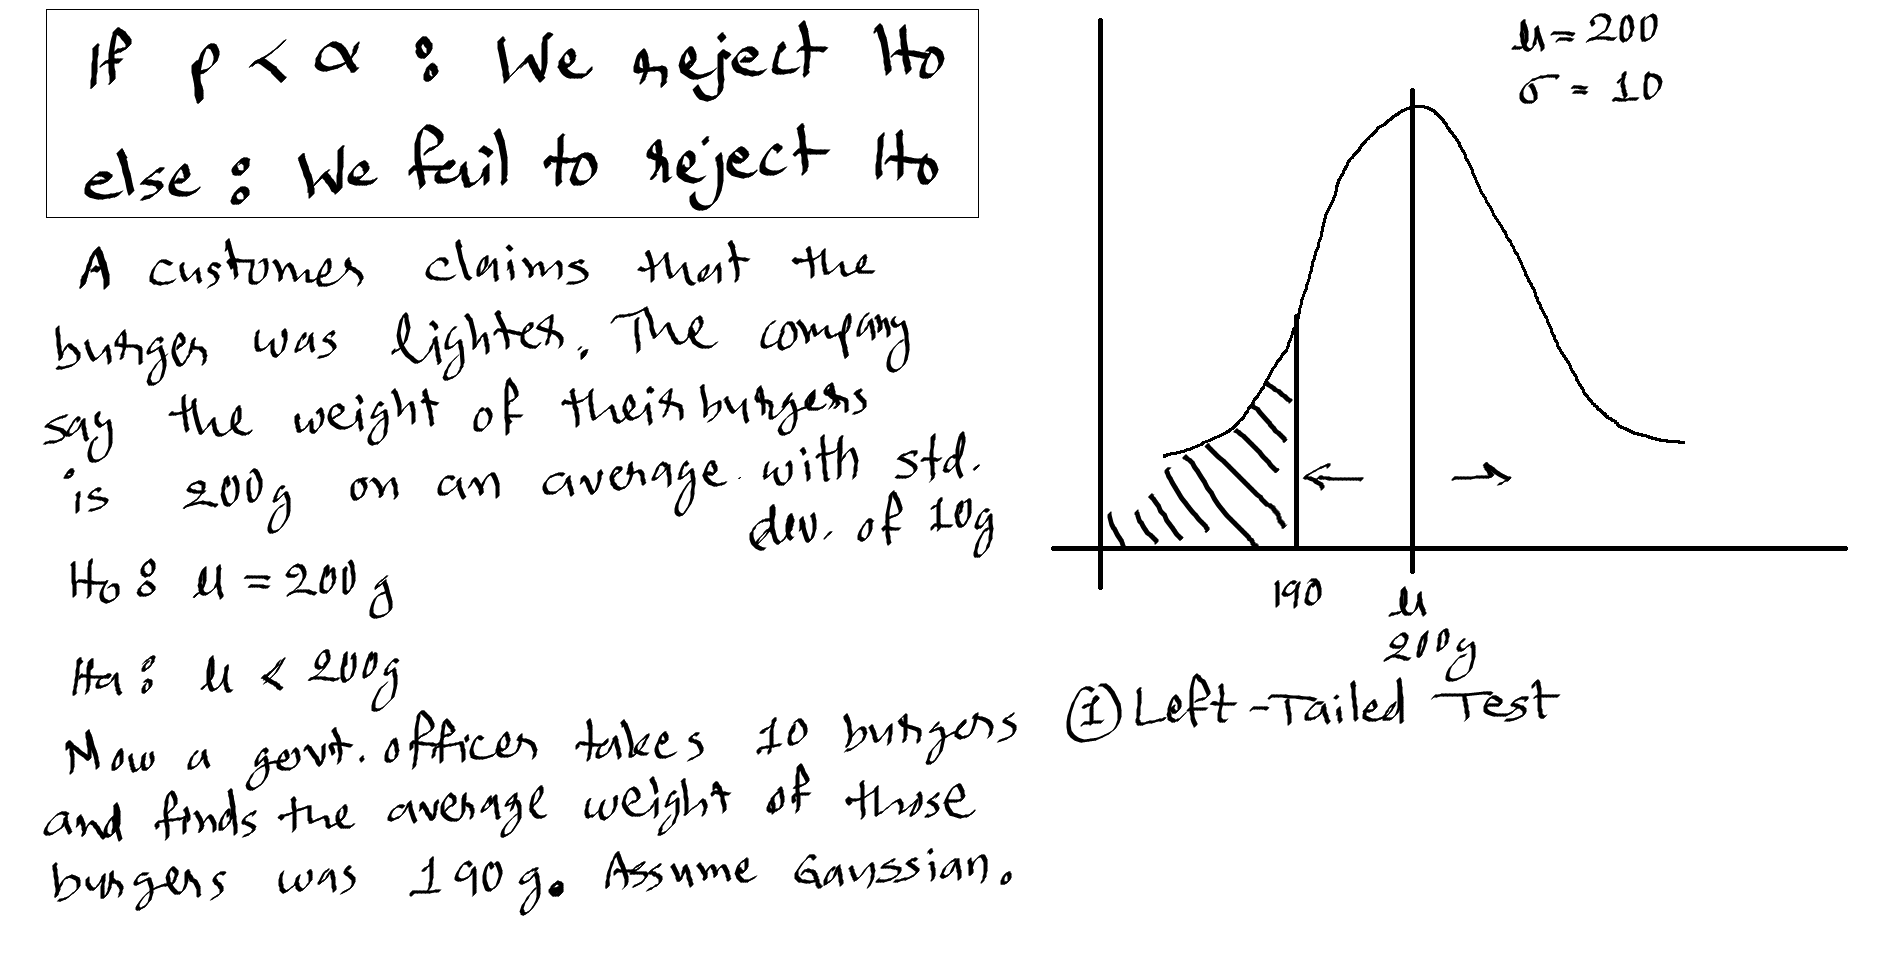 If p < α : We reject Ho
else : We fail to reject Ho
A customer claims that the
burger was lighter. The company
say the weight of their burgers
is 200g on an average with std.
dev. of 10g
Ho : μ = 200g
Ha : μ < 200g
Now a govt. officer takes 10 burgers
and finds the average weight of those
burgers was 190g. Assume Gaussian.
μ = 200
σ = 10
190
μ
200g
① Left-Tailed Test